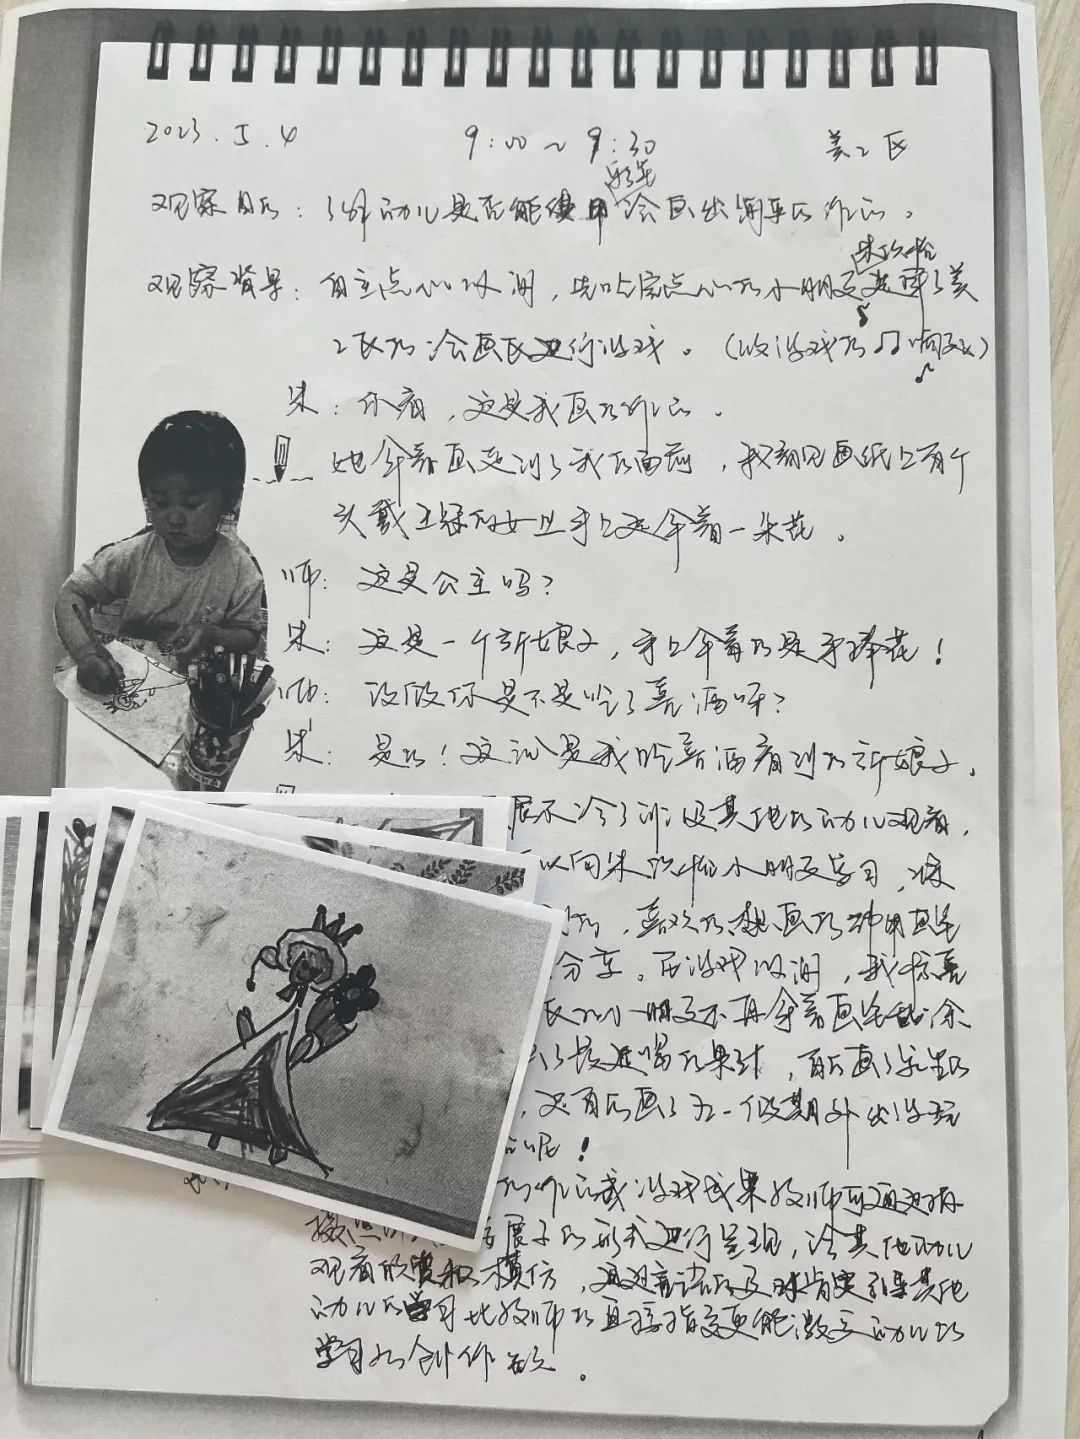 2023.5.4 9:00~9:30 美工区
观察目的:了解幼儿是否能使用彩笔绘画出简单的作品。
观察背景:自主点心时间,先吃完点心的小朋友朱 选择了美
工区的绘画区进行游戏。(收游戏的♫响起)
朱:你看,这是我画的作品。
她拿着画走到了我的面前,我看见画纸上有个
头戴王冠的女生手上还拿着一朵花。
师:这是公主吗?
朱:这是一个新娘子,手上拿着的是手捧花!
师:放假你是不是吃了喜酒呀?
朱:是的!这就是我吃喜酒看到的新娘子。
展示给了 其他的幼儿观看,
以向朱 小朋友学习,将
的,喜欢的,想画的都用画笔
分享。在游戏时间,我惊喜
区的小朋友不再拿着画笔乱涂
了 的果汁,有的画了
,还有的画了五一假期外出游玩
呢!
的作品或游戏成果教师可通过拍
摄照 展示的形式进行呈现,给其他幼儿
观看欣赏和模仿,通过言语的及时肯定引导其他
幼儿的学习比教师的直接指导更能激发幼儿的
学习和创作 。